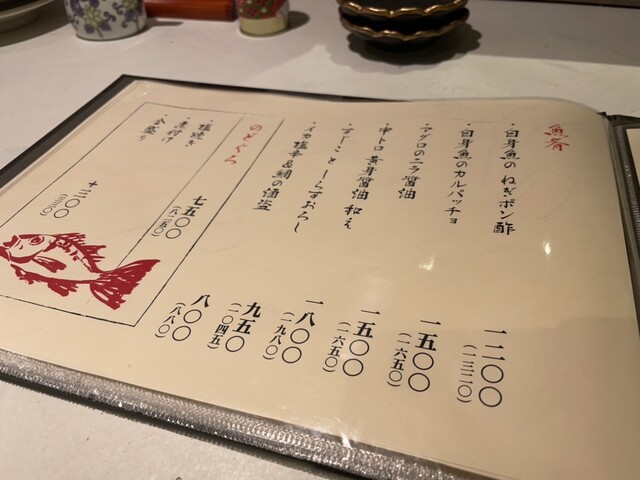 魚肴
・白身魚のねぎポン酢 一二〇〇
(一三二〇)
・白身魚のカルパッチョ 一五〇〇
(一六五〇)
・マグロのニラ醤油 一五〇〇
(一六五〇)
・中トロ黄身醤油和え 一八〇〇
(一九八〇)
・すじことしらすおろし 九五〇
(一〇四五)
・イカ塩辛&鯛の酒盗 八〇〇
(八八〇)
のどぐろ
・塩焼き
・煮付け 七五〇〇
(八二五〇)